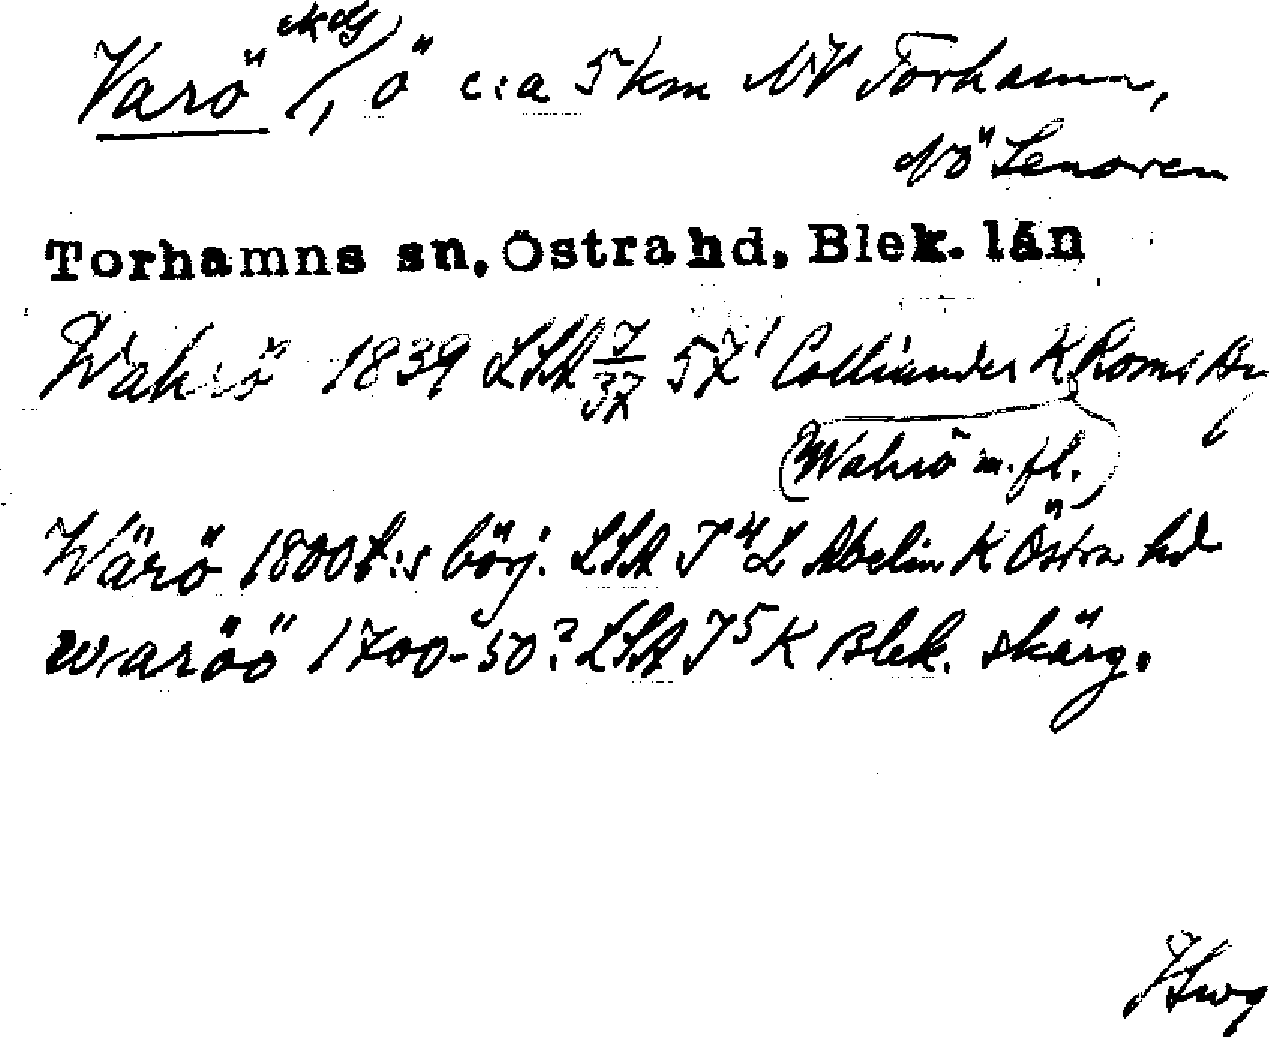 Varö, ö c:a 5 km NV Torhamn,
NÖ Senoren
Torhamns sn, Östra hd, Blek. län
Wahrö 1839 LSA 7/37 57' Colliander K
(Wahrö m.fl.)
Wärö 1800t:s börj. LSA J⁴L Abelin K Östra hd
waröö 1700-50? LSA J⁵K Blek. skärg.